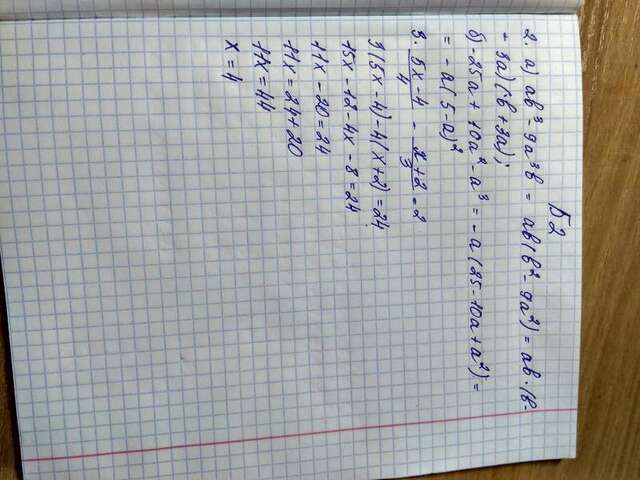 Б2
2. а) ab³ - 9a³b = ab(b² - 9a²) = ab·(b-
- 3a)(b + 3a);
б) -25a + 10a² - a³ = -a(25 - 10a + a²) =
= -a(5-a)²
3. (5x-4)/4 - (x+2)/3 = 2
3(5x-4) - 4(x+2) = 24
15x - 12 - 4x - 8 = 24
11x - 20 = 24
11x = 24 + 20
11x = 44
x = 4